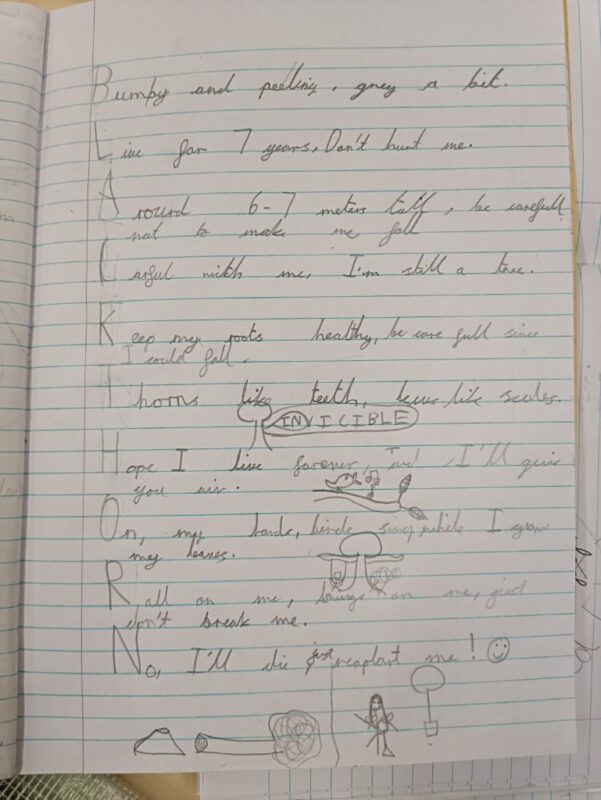 Bumpy and peeling, grey a bit.
Live for 7 years, Don't hurt me.
Around 6-7 meters tall, be carefull
not to make me fall
Carful with me, I'm still a tree.
Keep my roots healthy, be care full since
I could fall.
Thorns like teeth, leves like scales.
INVICIBLE
Hope I live forever, and I'll give
you air.
On, my hands, birds sing while I grow
my leaves.
Rall on me, on me, just
don't break me.
No, I'll die just reaplant me!